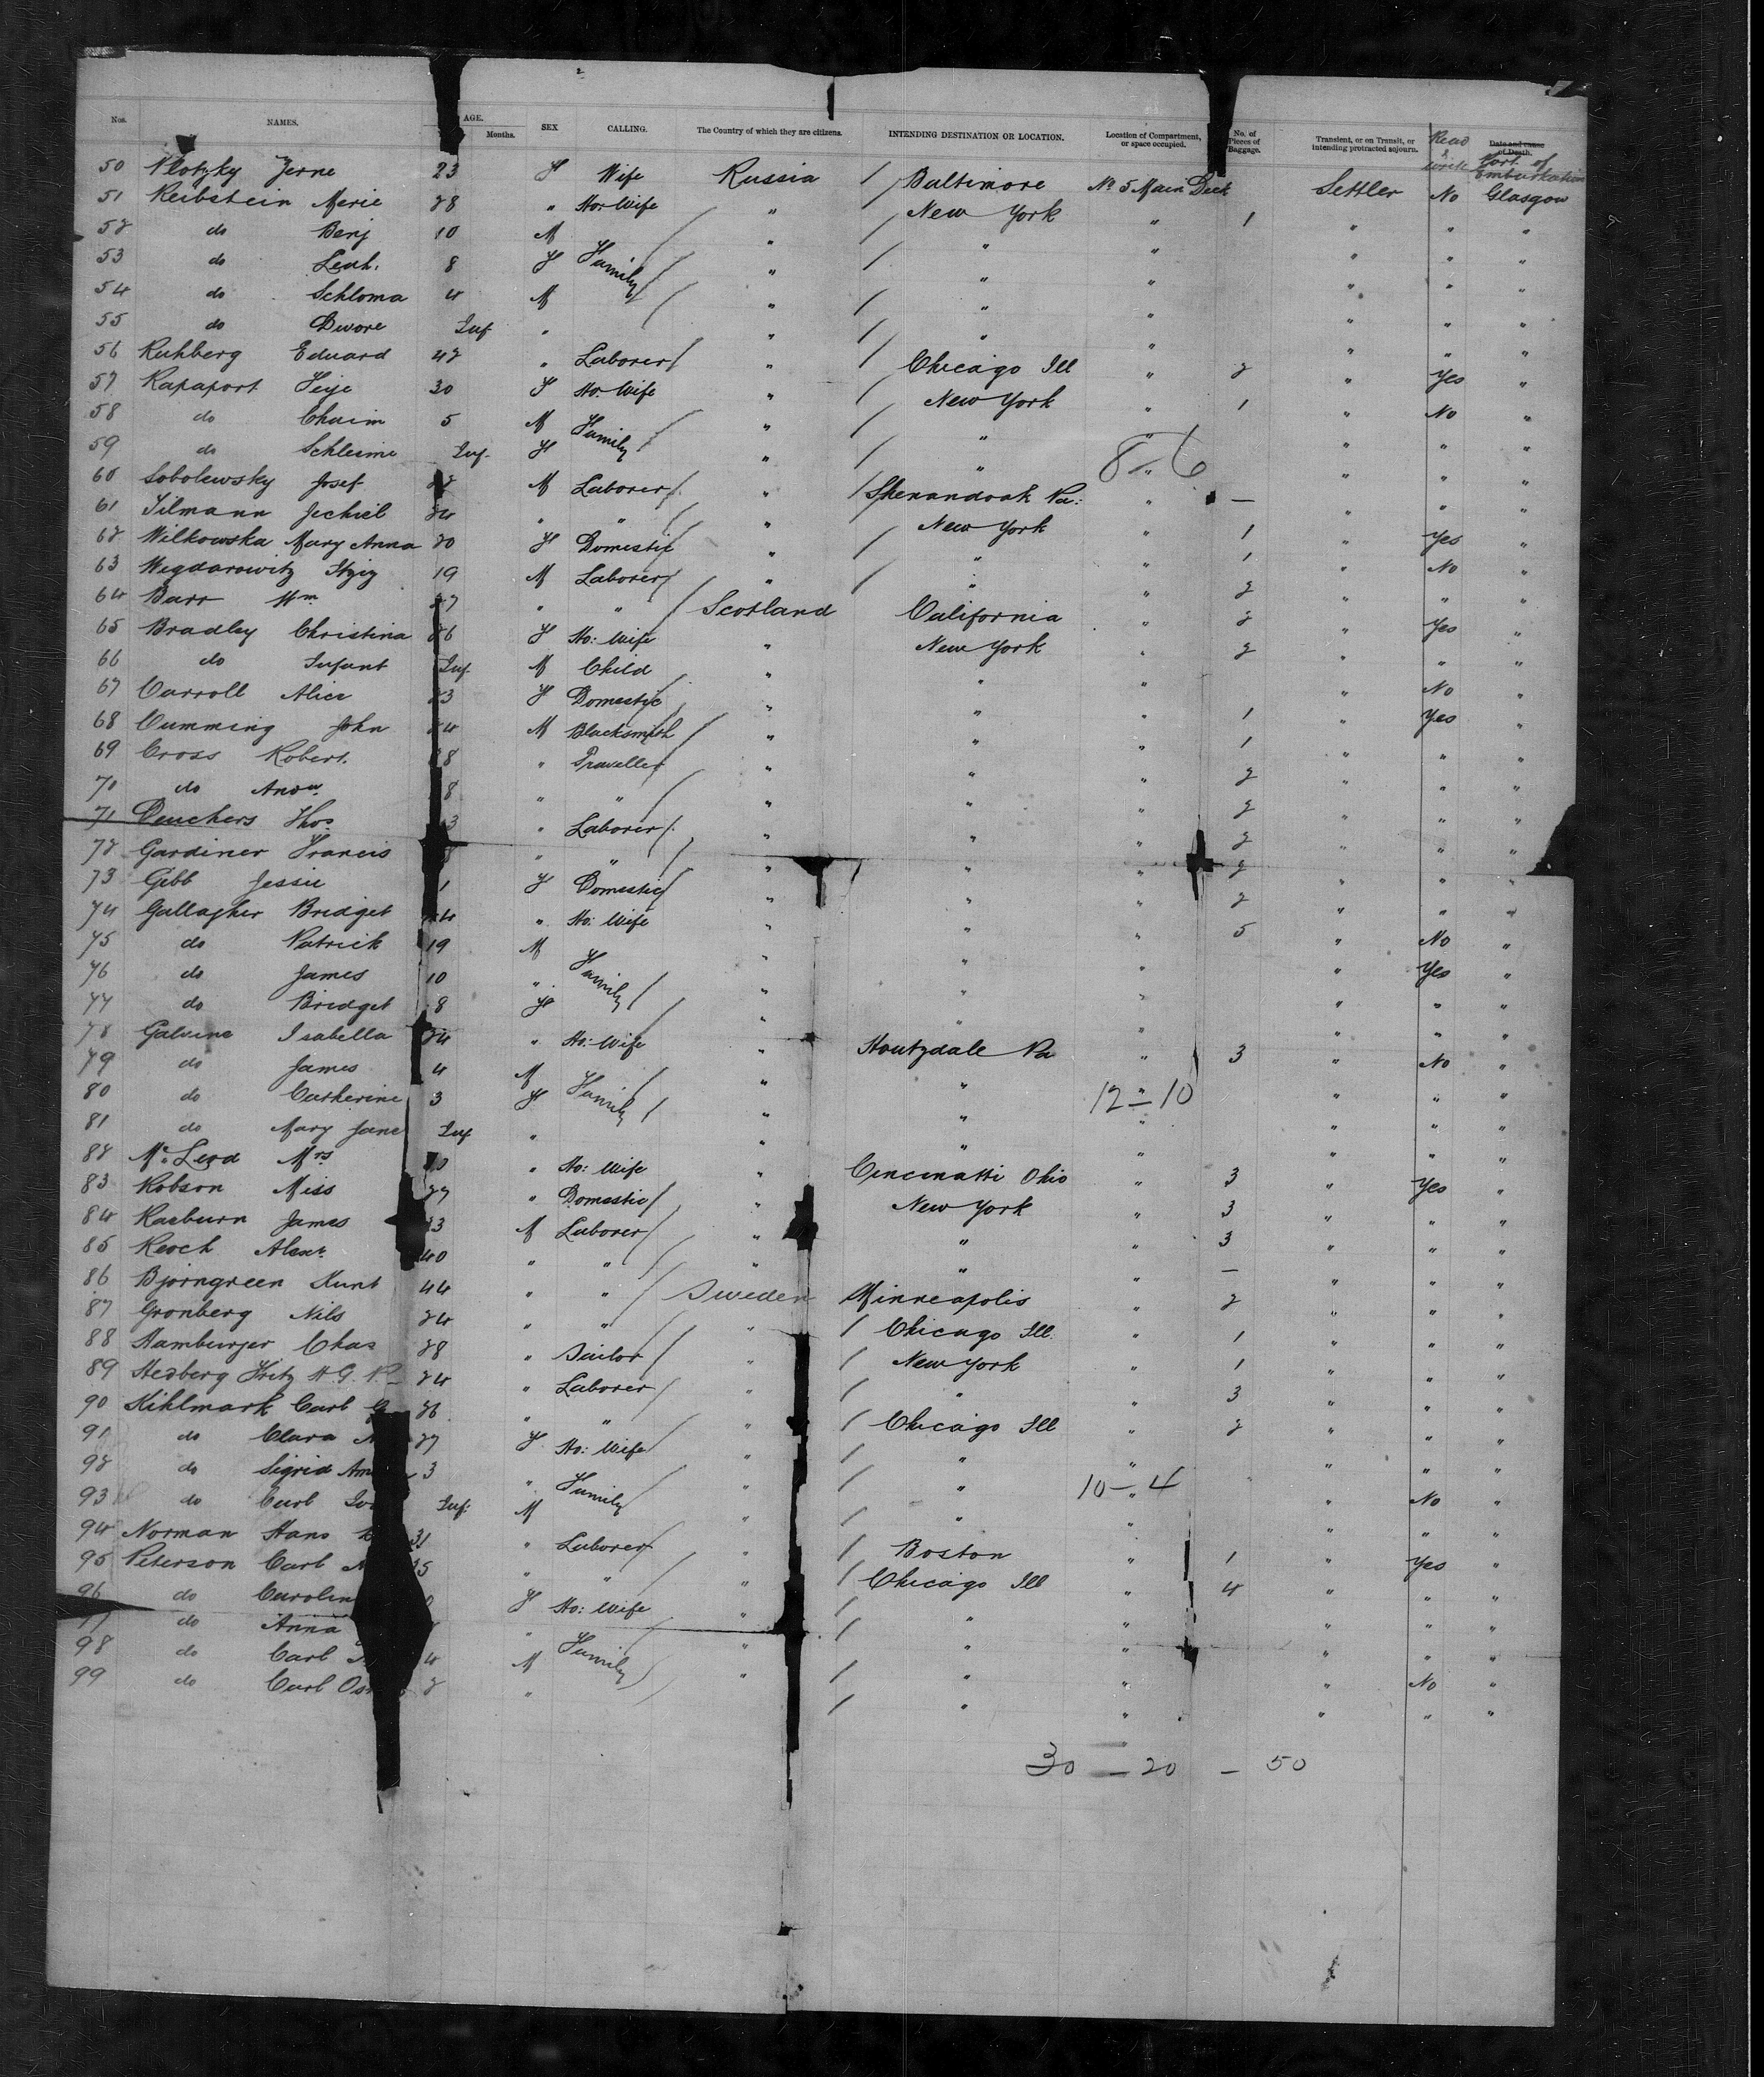 Nos. NAMES. AGE. Months. SEX CALLING. The Country of which they are citizens. INTENDING DESTINATION OR LOCATION. Location of Compartment, or space occupied. No. of Pieces of Baggage. Transient, or on Transit, or intending protracted sojourn. Read & write Date and cause of Death. Port of Embarkation
50 Plotzky Jerne 23 F Wife Russia / Baltimore No 5 Main Deck Settler No Glasgow
51 Reibstein Merie 28 " Ho: Wife " / New York " 1 " " "
52 do Benj 10 M Family " / " " " " "
53 do Leah. 8 F " " " " " "
54 do Schloma 4 M " / " " " " "
55 do Dwore Inf " " / " " " " "
56 Ruhberg Eduard 42 " Laborer " / Chicago Ill " 2 " Yes "
57 Rapaport Feije 30 F Ho: Wife " / New York " 1 " No "
58 do Chaim 5 M Family " / " " " " "
59 do Schleime Inf. F " / " 8-6 " " " "
60 Sobolewsky Josef M Laborer " / Shenandoah Pa: " — " " "
61 Tilmann Jechiel 24 " " " New York " 1 " Yes "
62 Wilkowska Mary Anna 20 F Domestic " / " " 1 " No "
63 Wigdarowitz Itzig 19 M Laborer " / " " 2 " " "
64 Barr Wm 27 " " Scotland California " 2 " Yes "
65 Bradley Christina 26 F Ho: Wife " New York " 2 " " "
66 do Infant Inf M Child " " " " No "
67 Carroll Alice 23 F Domestic " " " 1 " Yes "
68 Cumming John 24 M Blacksmith " " " 1 " " "
69 Cross Robert. 8 " Traveller " " " 2 " " "
70 do Andw 8 " " " " " 2 " " "
71 Deuchers Thos 3 " Laborer " " " 2 " " "
72 Gardiner Francis " " " " " 2 " " "
73 Gibb Jessie 1 F Domestic " " " 2 " " "
74 Gallagher Bridget 4 " Ho: Wife " " " 5 " No "
75 do Patrick 19 M Family " " " " Yes "
76 do James 10 " " " " " " "
77 do Bridget 8 F " " " " " "
78 Galvine Isabella 24 " Ho: Wife " Houtzdale Pa " 3 " No "
79 do James 4 M Family " " " " " "
80 do Catherine 3 F " " 12-10 " " " "
81 do Mary Jane Inf " " " " " " "
82 Mc Leod Mrs " Ho: Wife " Cincinatti Ohio " 3 " Yes "
83 Robson Miss 27 " Domestic " New York " 3 " " "
84 Raeburn James 3 M Laborer " " " 3 " " "
85 Reoch Alexr 40 " " " " " — " " "
86 Bjorngreen Kunt 44 " " Sweden Minneapolis " 2 " " "
87 Gronberg Nils 24 " " " / Chicago Ill. " 1 " " "
88 Hamburger Chas 28 " Sailor " / New York " 1 " " "
89 Hedberg Fritz H G. 24 " Laborer " / " " 3 " " "
90 Kihlmark Carl G 26 " " " / Chicago Ill " 2 " " "
91 do Clara 27 F Ho: Wife " / " " " " "
92 do Sigrid Am 3 " Family " / " 10-4 " " No "
93 do Carl Inf: M " / " " " " "
94 Norman Hans 31 " Laborer " / Boston " 1 " Yes "
95 Peterson Carl 5 " " " / Chicago Ill " 4 " " "
96 do Carolin F Ho: Wife " / " " " " "
97 do Anna " Family " / " " " " "
98 do Carl 4 M " / " " " No "
99 do Carl Os 2 " / " " " " "
30 — 20 — 50